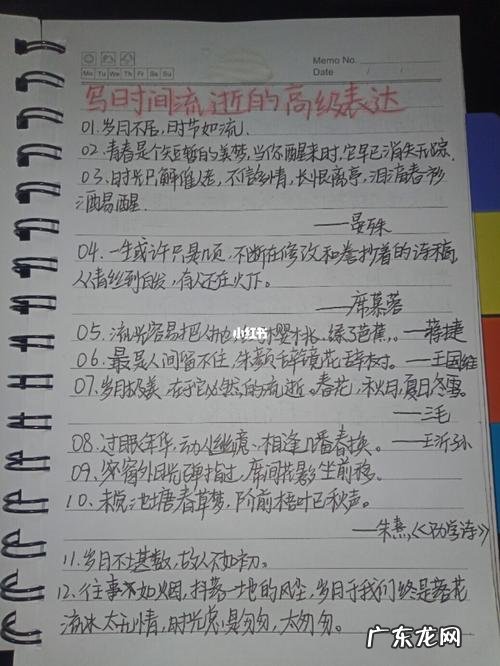 Memo No.
Mo Tu We Th Fr Sa Su
Date / /
写时间流逝的高级表达
01.岁月不居,时节如流.
02.青春是个短暂的美梦,当你醒来时,它早已消失无踪.
03.时光只解催人老,不信多情,长恨离亭,泪滴春衫
酒易醒.
——晏殊
04.一生或许只是几页,不断在修改和誊抄着的诗稿,
从青丝到白发,有人还在灯下。
——席慕蓉
05.流光容易把人抛,红了樱桃,绿了芭蕉。——蒋捷
小红书
06.最是人间留不住,朱颜辞镜花辞树.——王国维
07.岁月极美,在于它必然的流逝。春花,秋月,夏日,冬雪。
——三毛
08.过眼年华,动人幽意,相逢几番春换。——王沂孙
09.窗外日光弹指过,席间花影坐前移。
10.未觉池塘春草梦,阶前梧叶已秋声。
——朱熹,《劝学诗》
11.岁月不堪数,故人不如初。
12.往事不如烟,抖落一地的风尘,岁月于我们终是落花
流水太无情,时光虑是匆匆,太匆匆。
广东龙网